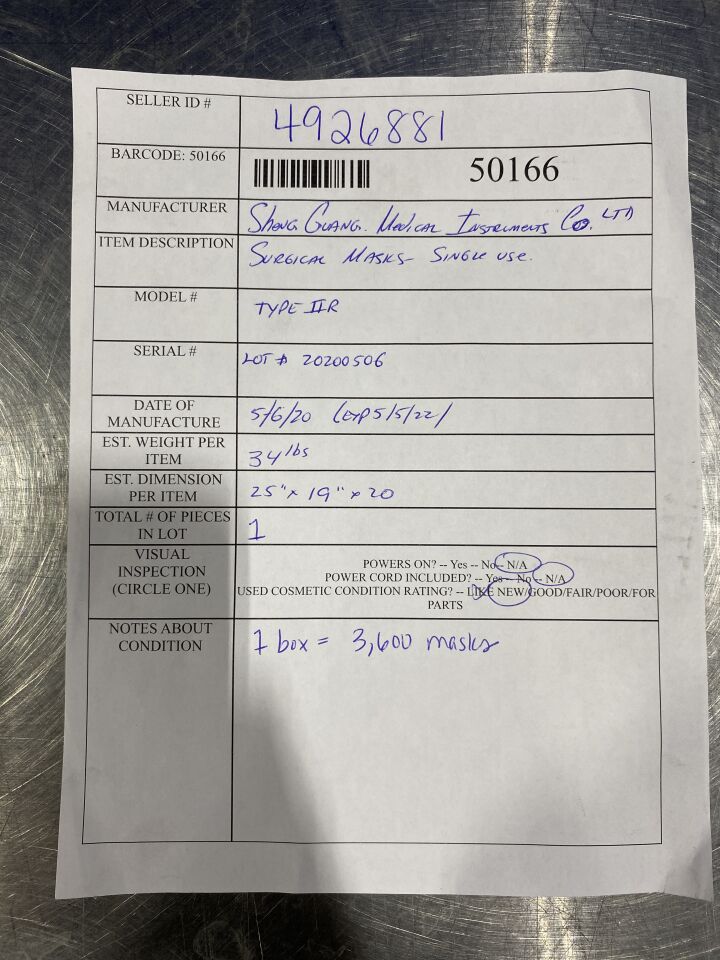 SELLER ID # 4926881
BARCODE: 50166 50166
MANUFACTURER Sheng Guang. Medical Instruments Co. LTD
ITEM DESCRIPTION SURGICAL MASKS- SINGLE USE.
MODEL # TYPE IIR
SERIAL # LOT # 20200506
DATE OF
MANUFACTURE 5/6/20 (EXP 5/5/22/
EST. WEIGHT PER
ITEM 34 lbs
EST. DIMENSION
PER ITEM 25" x 19" x 20
TOTAL # OF PIECES
IN LOT 1
VISUAL
INSPECTION
(CIRCLE ONE)
POWERS ON? -- Yes -- No -- N/A
POWER CORD INCLUDED? -- Yes -- No -- N/A
USED COSMETIC CONDITION RATING? -- LIKE NEW/GOOD/FAIR/POOR/FOR
PARTS
NOTES ABOUT
CONDITION 1 box = 3,600 masks